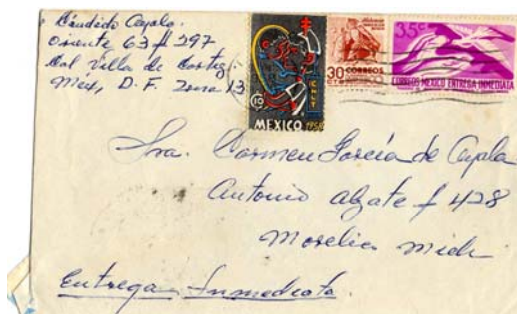 Cándido Ayala.
Oriente 63 # 297
Col Villa de Cortez
Méx, D. F. Zona 13
10
MEXICO 1958
30 CORREOS
35¢
CORREOS MEXICO ENTREGA INMEDIATA
Sra. Carmen García de Ayala
Antonio Alzate # 428
Morelia Mich
Entrega Inmediata.